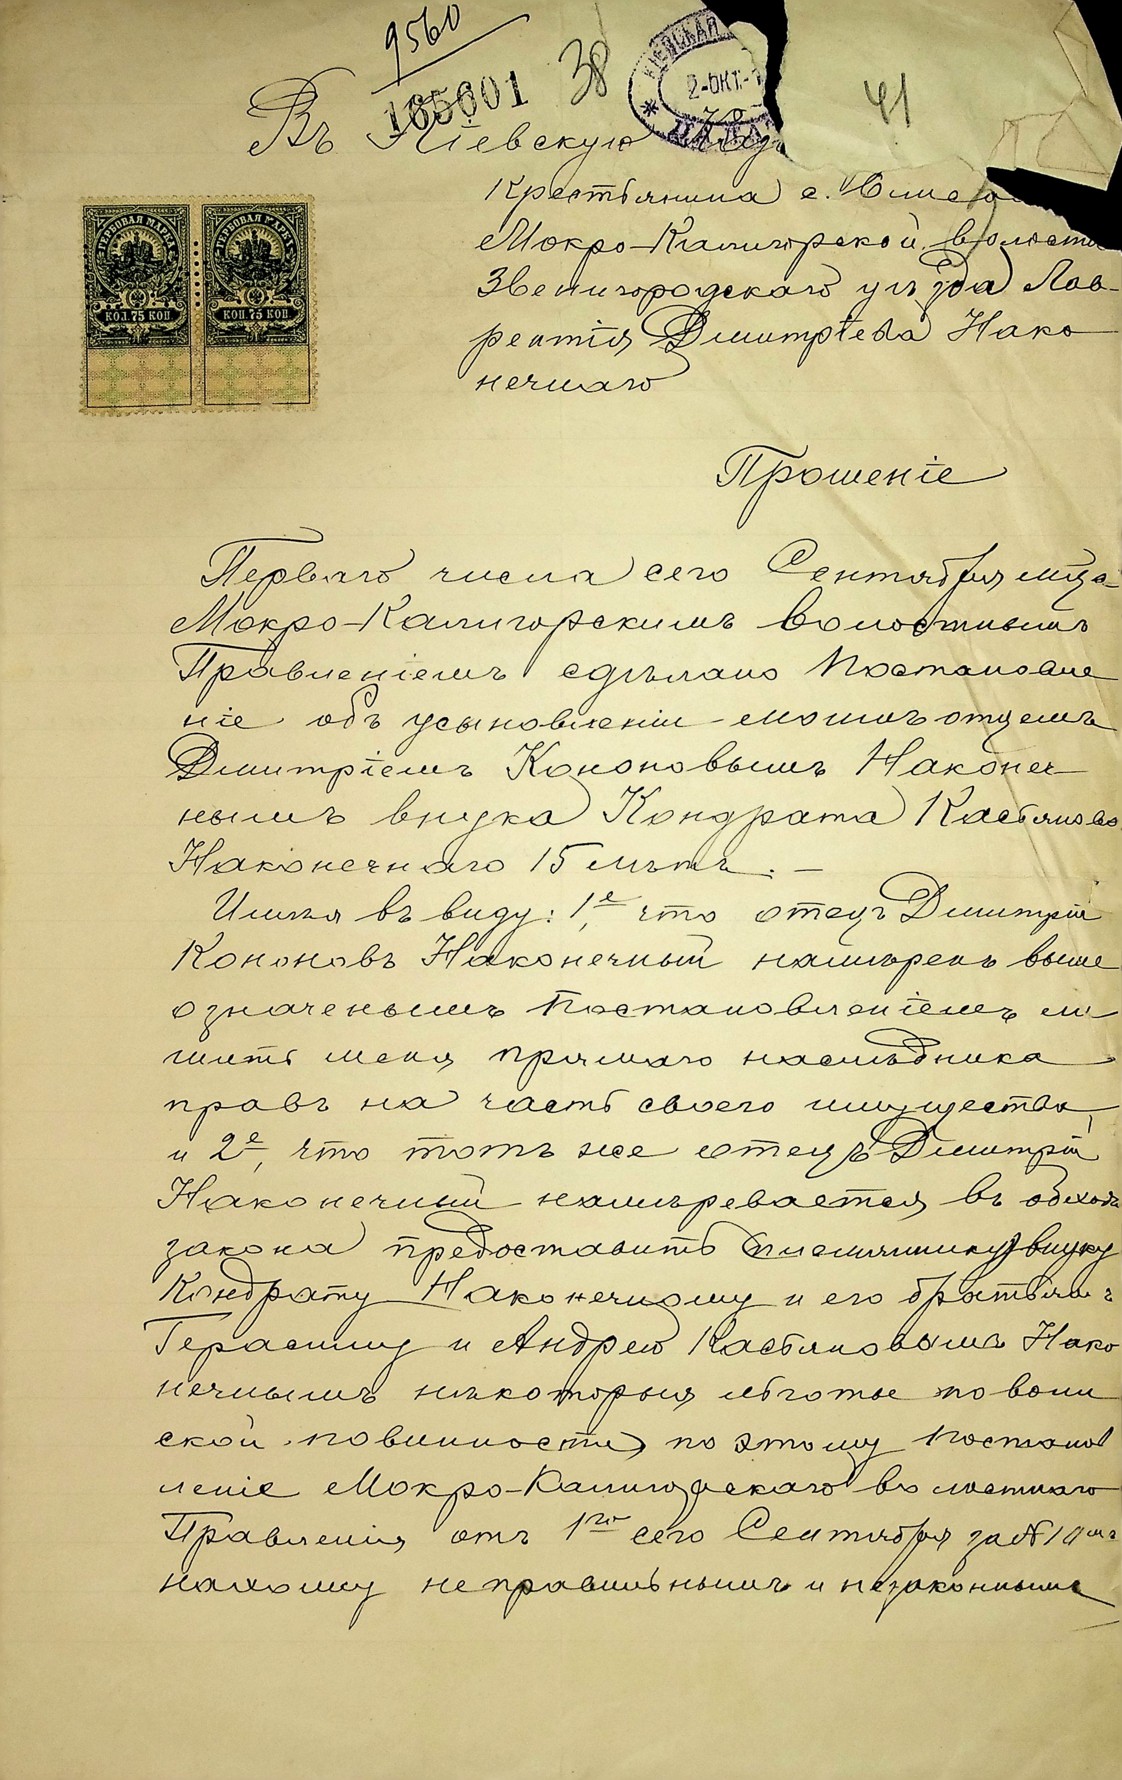 9560
165601
38
41
КІЕВСКАЯ
2-ОКТ.-1
Въ Кіевскую
Крестьянина с.
Мокро-Калигорской волости
Звенигородскаго уѣзда Лав-
рентія Дмитріева Нако
нечнаго
ГЕРБОВАЯ МАРКА ГЕРБОВАЯ МАРКА
КОП. 75 КОП. КОП. 75 КОП.
Прошеніе
Перваго числа сего Сентября м-ца
Мокро-Калигорскимъ волостнымъ
Правленіемъ сдѣлано постановле
ніе объ усыновленіи моимъ отцемъ
Дмитріемъ Кононовымъ Наконеч
нымъ внука Кондрата Касьянова
Наконечнаго 15 лѣтъ. –
Имѣя въ виду: 1е, что отецъ Дмитрій
Кононовъ Наконечный намѣренъ выше
означенымъ постановленіемъ ли
шить меня прямаго наслѣдника
правъ на часть своего имущества,
и 2е, что тотъ же отецъ Дмитрій
Наконечный намѣревается въ обходъ
закона предоставить внуку
Кондрату Наконечному и его братьямъ
Герасиму и Андрею Касьяновымъ Нако
нечнымъ нѣкоторыя льготы по воин
ской повинности, по этому постанов
леніе Мокро-Калигорскаго волостнаго
Правленія отъ 1го сего Сентября за №
нахожу неправильнымъ и незаконнымъ